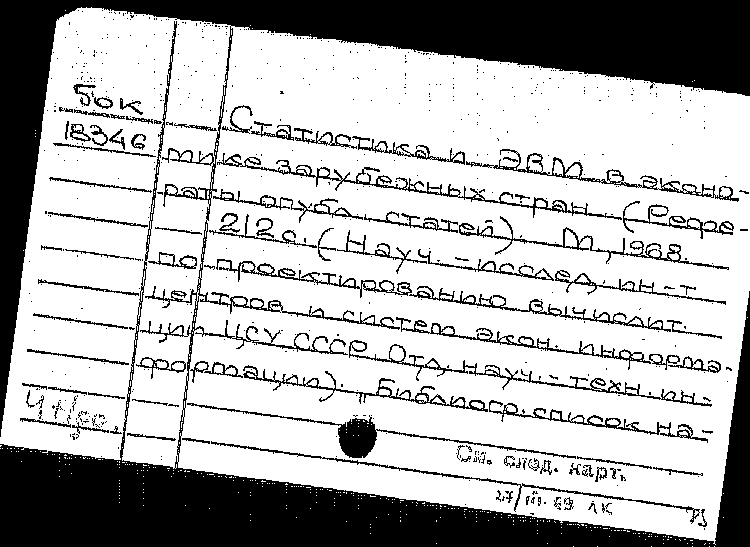 50к
18346
Статистика и ЭВМ в эконо-
мике зарубежных стран. (Рефе-
раты опубл. статей). М., 1968.
212 с. (Науч.-исслед. ин-т
по проектированию вычислит.
центров и систем экон. информа-
ции ЦСУ СССР. Отд. науч.-техн. ин-
формации). Библиогр. список на-
См. след. карт.
27/III.69 ЛК